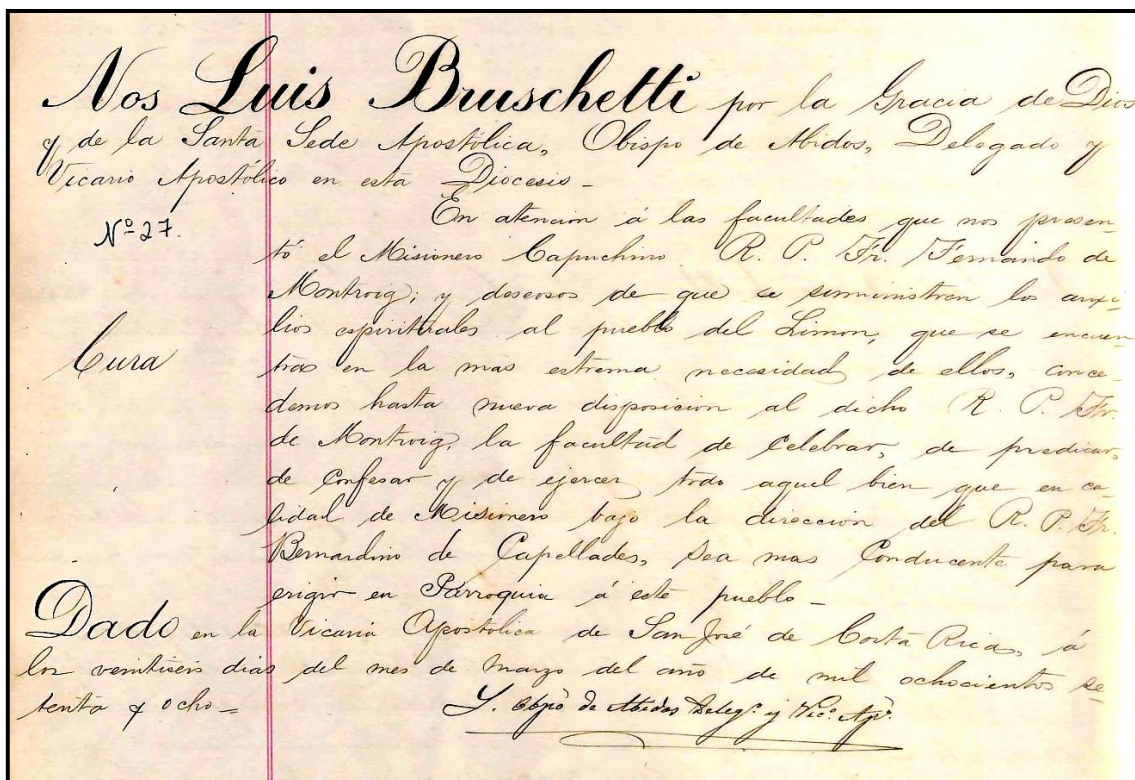 Nos Luis Bruschetti por la Gracia de Dios
y de la Santa Sede Apostólica, Obispo de Abidos, Delegado y
Vicario Apostólico en esta Diocesis -
Nº 27.
En atencion á las facultades que nos presen-
tó el Misionero Capuchino R. P. Fr. Fernando de
Montroig; y deseosos de que se suministren los auxi-
lios espirituales al pueblo del Limon, que se encuen-
Cura
tra en la mas estrema necesidad de ellos, conce-
demos hasta nueva disposicion al dicho R. P. Fr.
de Montroig, la facultad de celebrar, de predicar,
de confesar y de ejercer todo aquel bien que en ca-
lidad de Misionero bajo la direccion del R. P. Fr.
Bernardino de Capellades, sea mas conducente para
erigir en Parroquia á este pueblo -
Dado en la Vicaria Apostolica de San José de Costa Rica, á
los veintiseis dias del mes de Marzo del año de mil ochocientos se
tenta y ocho =
L. Obpo de Abidos Delegº y Vicº Apº.